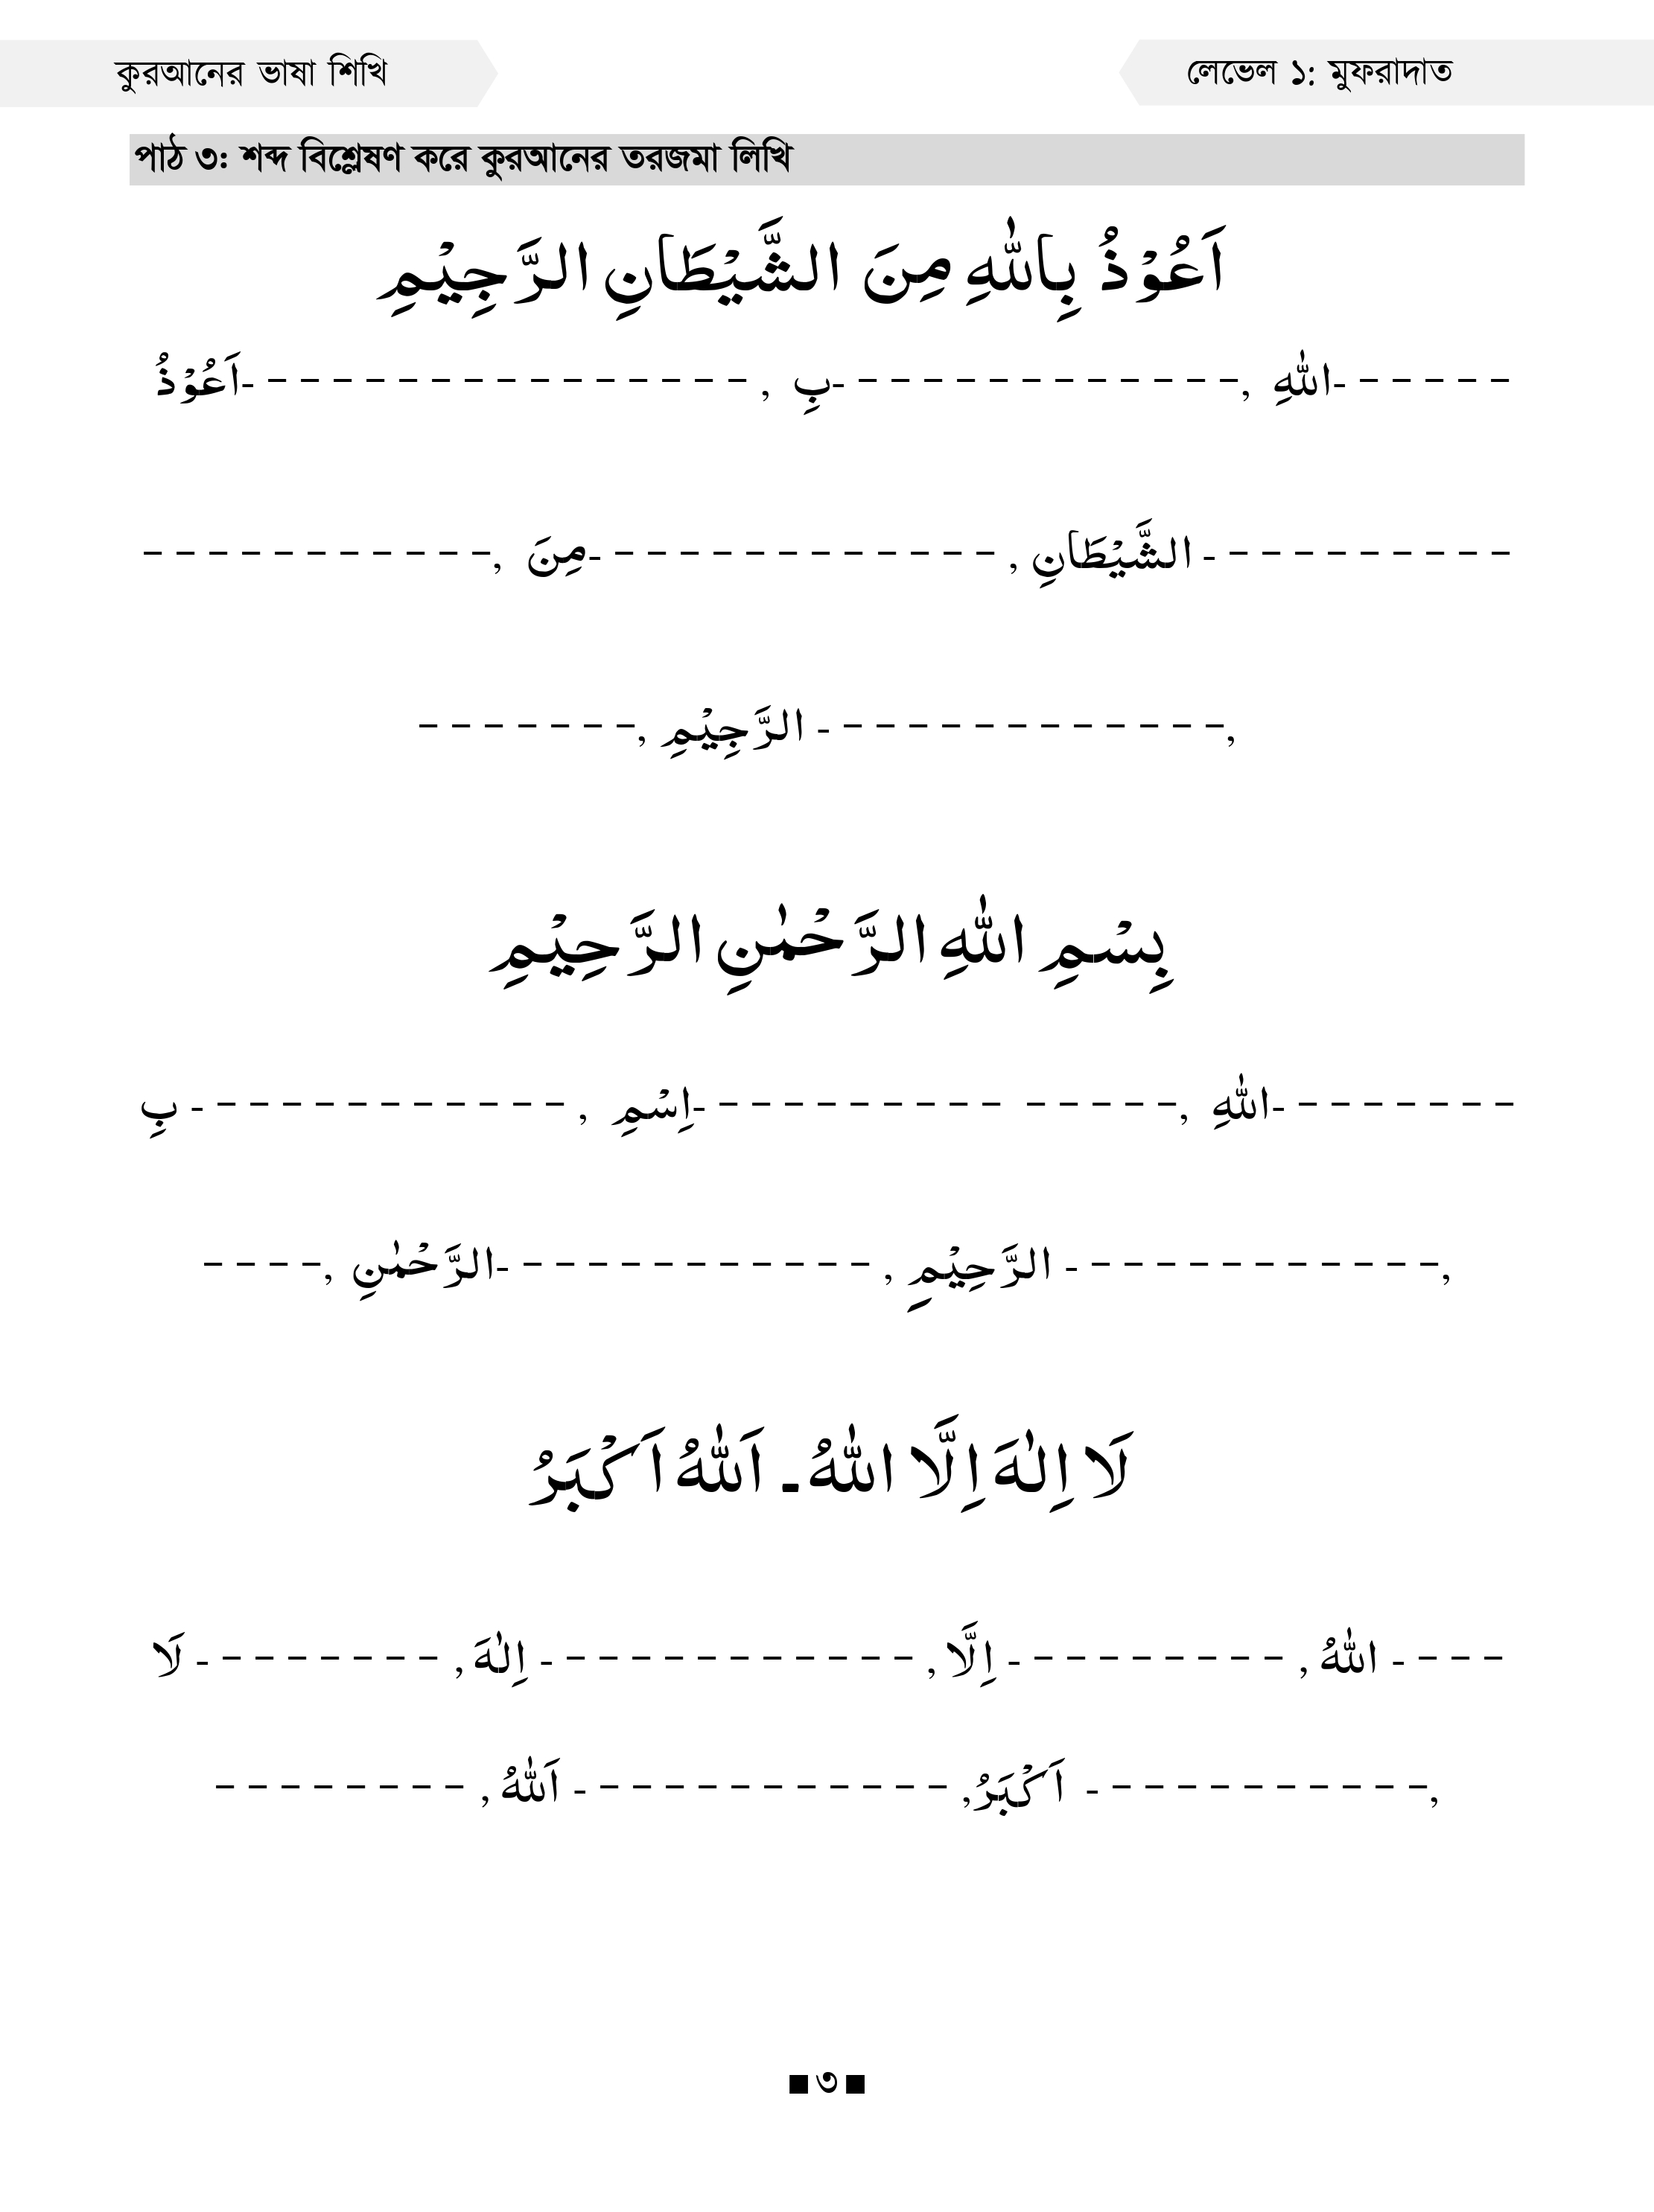 কুরআনের ভাষা শিখি
লেভেল ১: মুফরাদাত
পাঠ ৩: শব্দ বিশ্লেষণ করে কুরআনের তরজমা লিখি
اَعُوْذُ بِاللّٰهِ مِنَ الشَّيْطَانِ الرَّجِيْمِ
اَعُوْذُ- – – – – – – – – – – – – – – – , بِ- – – – – – – – – – – – –, اللّٰهِ- – – – – –
– – – – – – – – – – –, مِنَ- – – – – – – – – – – – – , الشَّيْطَانِ - – – – – – – – – –
– – – – – – –, الرَّجِيْمِ - – – – – – – – – – – – –,
بِسْمِ اللّٰهِ الرَّحْمٰنِ الرَّحِيْمِ
بِ - – – – – – – – – – – – , اِسْمِ- – – – – – – – – – – – – – –, اللّٰهِ- – – – – – – –
– – – –, الرَّحْمٰنِ- – – – – – – – – – – – , الرَّحِيْمِ - – – – – – – – – – – –,
لَا اِلٰهَ اِلَّا اللّٰهُ ـ اَللّٰهُ اَكْبَرُ
لَا - – – – – – – – , اِلٰهَ - – – – – – – – – – – – , اِلَّا - – – – – – – – – , اللّٰهُ - – – –
– – – – – – – – , اَللّٰهُ - – – – – – – – – – – – , اَكْبَرُ - – – – – – – – – – –,
■ ৩ ■